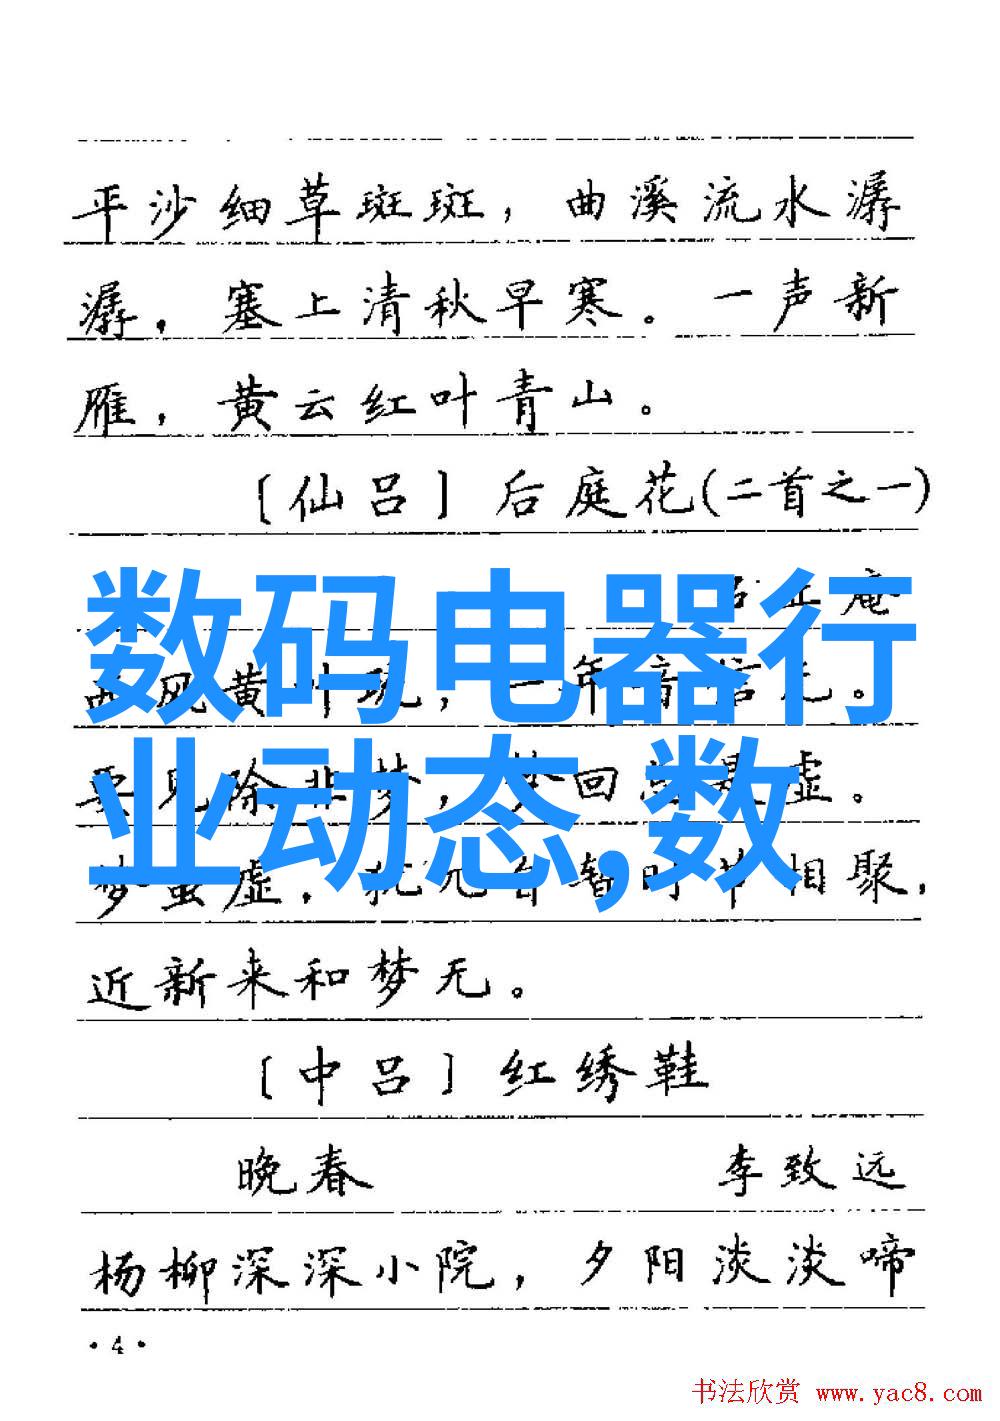 平沙细草斑斑，曲溪流水潺
潺，塞上清秋早寒。一声新
雁，黄云红叶青山。
〔仙吕〕后庭花(二首之一)
庵
数码电器行
黄叶，一年音信无。
业动态,数
要见除非梦，梦回总是虚。
梦虽虚，犹兀自暂时节相聚，
近新来和梦无。
〔中吕〕红绣鞋
晚春 李致远
杨柳深深小院，夕阳淡淡啼
·4·
书法欣赏 www.yac8.com